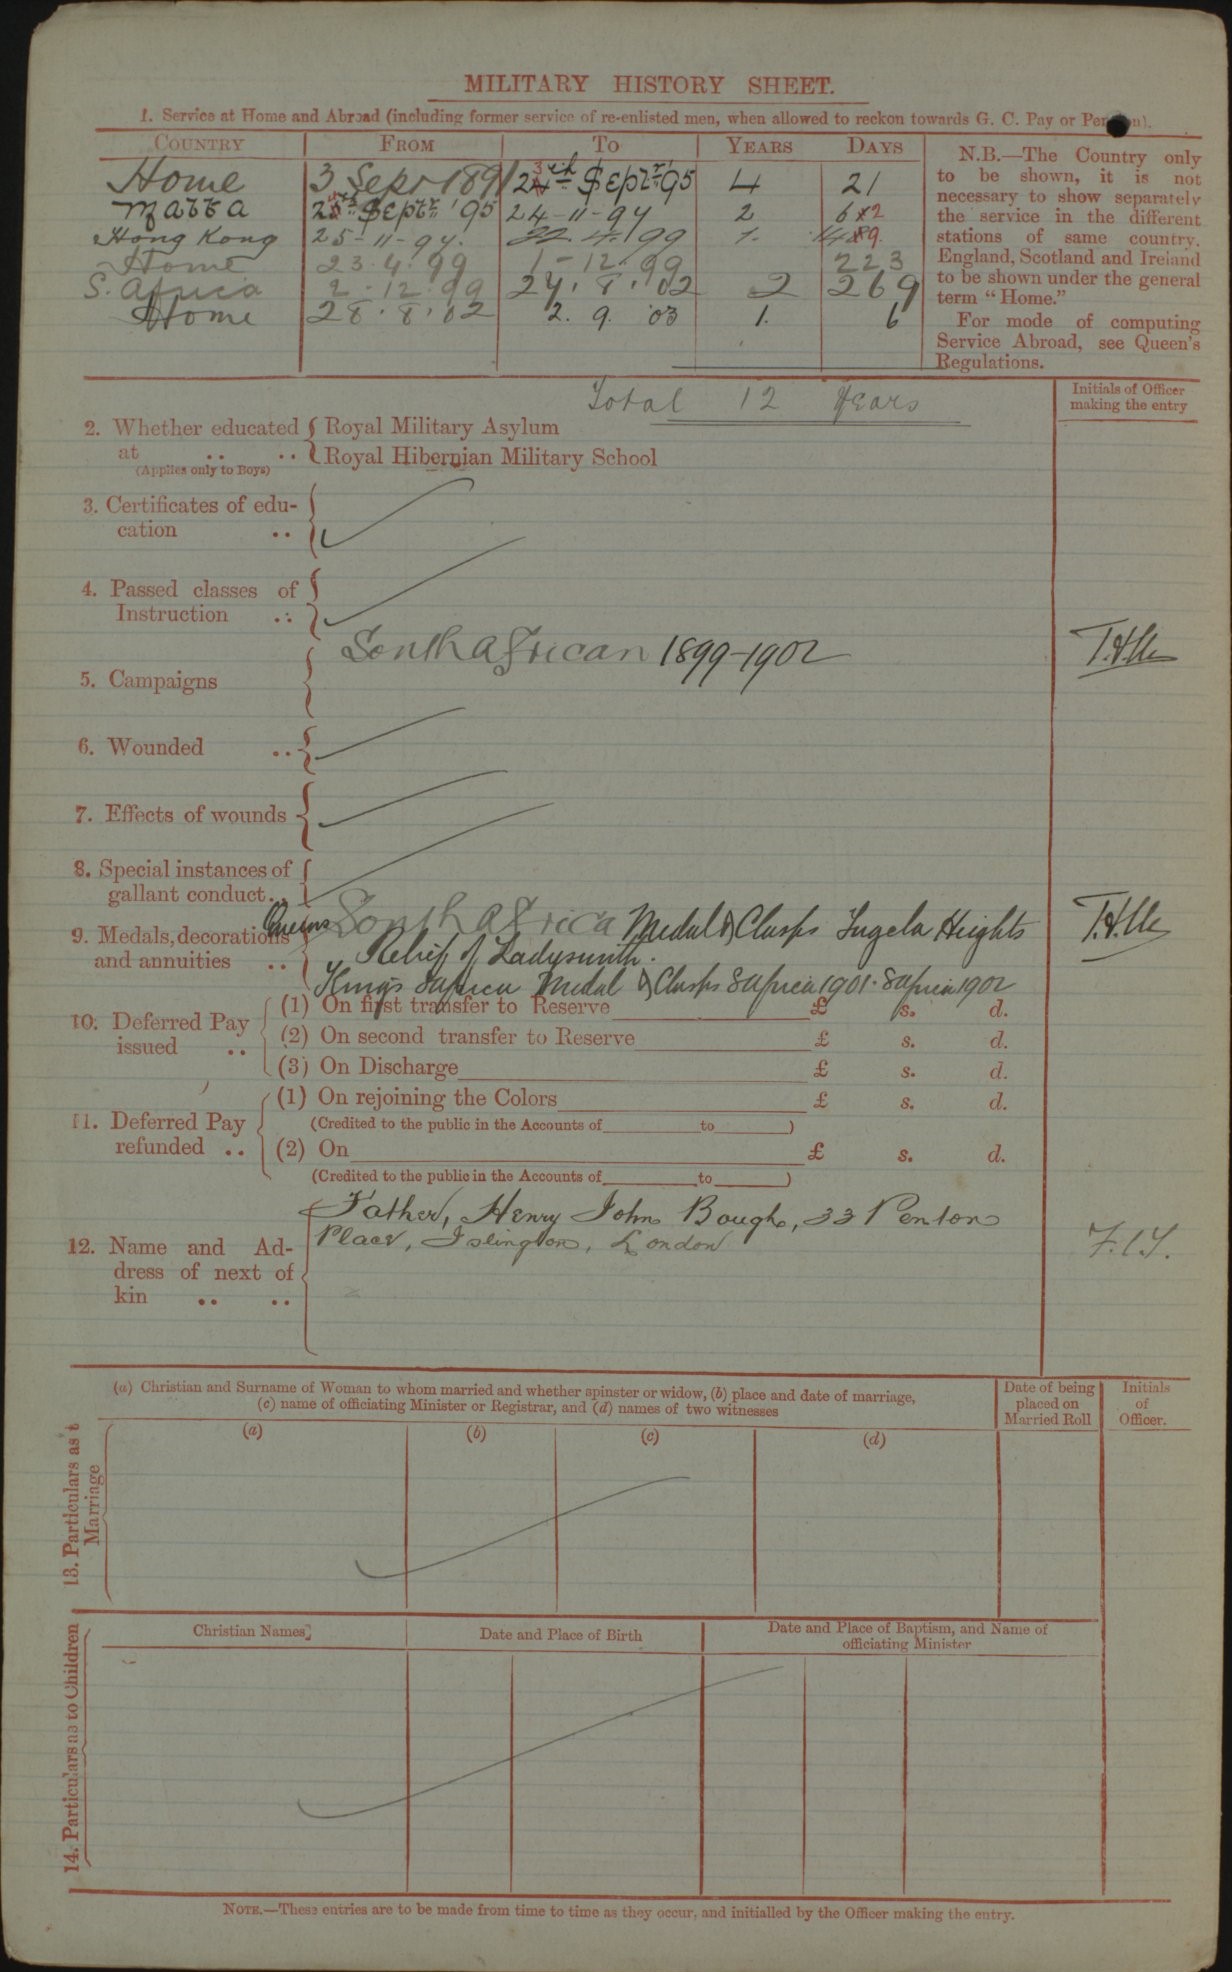 MILITARY HISTORY SHEET.
1. Service at Home and Abroad (including former service of re-enlisted men, when allowed to reckon towards G. C. Pay or Pension).
COUNTRY FROM TO YEARS DAYS
Home 3 Sept 1891 24th Septr '95 4 21
Malta 25th Septr '95 24-11-97 2 62
Hong Kong 25-11-97. 22.4.99 1. 149.
Home 23.4.99 1-12.99 223
S. Africa 2.12.99 27.8.02 2 269
Home 28.8.02 2.9.03 1. 6
Total 12 Years
N.B.—The Country only
to be shown, it is not
necessary to show separately
the service in the different
stations of same country.
England, Scotland and Ireland
to be shown under the general
term "Home."
For mode of computing
Service Abroad, see Queen's
Regulations.
Initials of Officer
making the entry
2. Whether educated Royal Military Asylum
at .. .. Royal Hibernian Military School
(Applies only to Boys)
3. Certificates of edu-
cation ..
4. Passed classes of
Instruction ..
South African 1899-1902
5. Campaigns
6. Wounded ..
7. Effects of wounds
8. Special instances of
gallant conduct..
Queens South Africa Medal & Clasps Tugela Heights
9. Medals, decorations
and annuities ..
" Relief of Ladysmith.
Kings S Africa Medal & Clasps S Africa 1901. S Africa 1902
10. Deferred Pay
issued ..
(1) On first transfer to Reserve £ s. d.
(2) On second transfer to Reserve £ s. d.
(3) On Discharge £ s. d.
11. Deferred Pay
refunded ..
(1) On rejoining the Colors £ s. d.
(Credited to the public in the Accounts of to )
(2) On £ s. d.
(Credited to the public in the Accounts of to )
Father, Henry John Bough, 33 Penton
Place, Islington, London
12. Name and Ad-
dress of next of
kin .. ..
13. Particulars as t
Marriage
(a) Christian and Surname of Woman to whom married and whether spinster or widow, (b) place and date of marriage,
(c) name of officiating Minister or Registrar, and (d) names of two witnesses
Date of being
placed on
Married Roll
Initials
of
Officer.
(a) (b) (c) (d)
14. Particulars as to Children
Christian Names
Date and Place of Birth
Date and Place of Baptism, and Name of
officiating Minister
NOTE.—These entries are to be made from time to time as they occur, and initialled by the Officer making the entry.